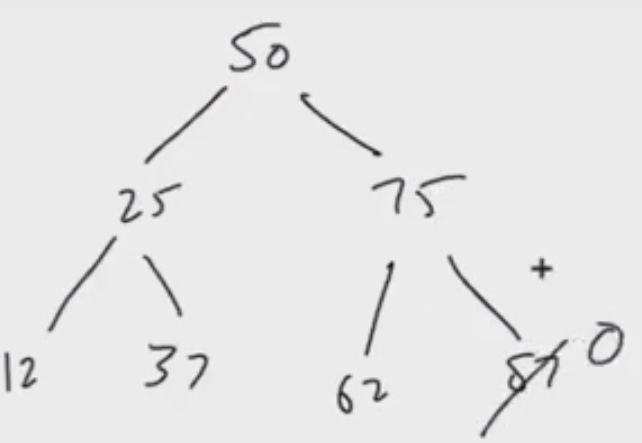 50
25 75
12 37 62 87 0